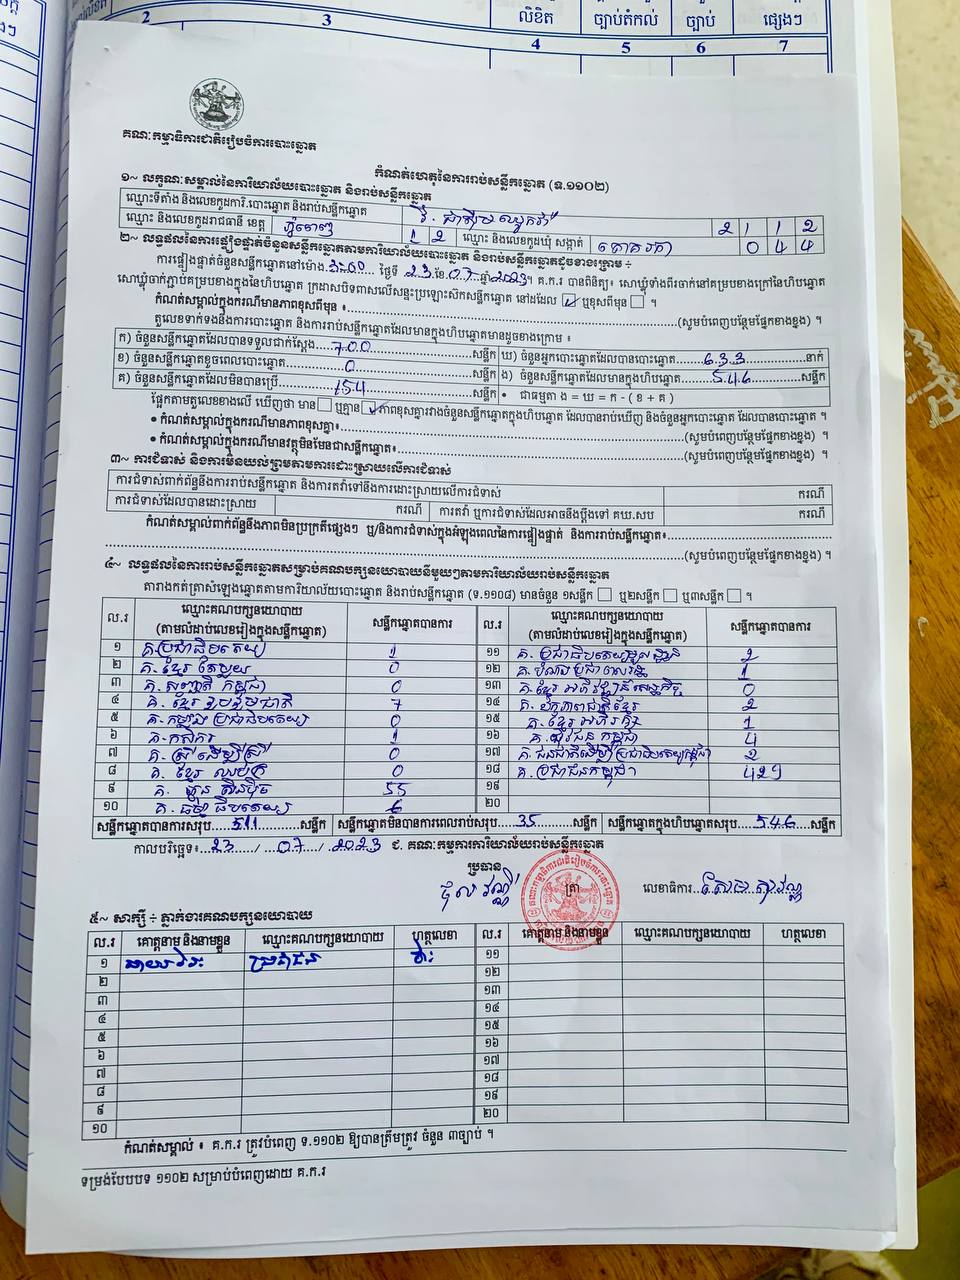 2
3
លិខិត
ច្បាប់តំកល់
ច្បាប់
ផ្សេងៗ
4
5
6
7
គណៈកម្មាធិការជាតិរៀបចំការបោះឆ្នោត
កំណត់ហេតុនៃការរាប់សន្លឹកឆ្នោត (ទ.១១០២)
១~ លក្ខណៈសម្គាល់នៃការិយាល័យបោះឆ្នោត និងរាប់សន្លឹកឆ្នោត
ឈ្មោះទីតាំង និងលេខកូដការិ.បោះឆ្នោត និងរាប់សន្លឹកឆ្នោត 2 1 1 2
ឈ្មោះ និងលេខកូដរាជធានី ខេត្ត ភ្នំពេញ 1 2 ឈ្មោះ និងលេខកូដឃុំ សង្កាត់ 0 4 4
២~ លទ្ធផលនៃការផ្ទៀងផ្ទាត់ចំនួនសន្លឹកឆ្នោតតាមការិយាល័យបោះឆ្នោត និងរាប់សន្លឹកឆ្នោតដូចខាងក្រោម ÷
ការផ្ទៀងផ្ទាត់ចំនួនសន្លឹកឆ្នោតនៅម៉ោង ថ្ងៃទី 23 ខែ 07 ឆ្នាំ 2023។ គ.ក.រ បានពិនិត្យ៖ សោឃ្លុំទាំងពីរចាក់នៅគម្របខាងក្រៅនៃហិបឆ្នោត
សោឃ្លុំចាក់ភ្ជាប់គម្របខាងក្នុងនៃហិបឆ្នោត ក្រដាសបិទពាសលើសន្លះប្រឡោះស៊កសន្លឹកឆ្នោត នៅដដែល ឬខុសពីមុន ។
កំណត់សម្គាល់ក្នុងករណីមានភាពខុសពីមុន ៖ (សូមបំពេញបន្ថែមផ្នែកខាងខ្នង) ។
តួលេខទាក់ទងនឹងការបោះឆ្នោត និងការរាប់សន្លឹកឆ្នោតដែលមានក្នុងហិបឆ្នោតមានដូចខាងក្រោម ៖
ក) ចំនួនសន្លឹកឆ្នោតដែលបានទទួលជាក់ស្តែង 700 សន្លឹក ឃ) ចំនួនអ្នកបោះឆ្នោតដែលបានបោះឆ្នោត 633 នាក់
ខ) ចំនួនសន្លឹកឆ្នោតខូចពេលបោះឆ្នោត 0 សន្លឹក ង) ចំនួនសន្លឹកឆ្នោតដែលមានក្នុងហិបឆ្នោត 546 សន្លឹក
គ) ចំនួនសន្លឹកឆ្នោតដែលមិនបានប្រើ 154 សន្លឹក • ជាធម្មតា ង = ឃ = ក - ( ខ + គ )
ផ្អែកតាមតួលេខខាងលើ ឃើញថា មាន ឬគ្មាន ភាពខុសគ្នារវាងចំនួនសន្លឹកឆ្នោតក្នុងហិបឆ្នោត ដែលបានរាប់ឃើញ និងចំនួនអ្នកបោះឆ្នោត ដែលបានបោះឆ្នោត ។
• កំណត់សម្គាល់ក្នុងករណីមានភាពខុសគ្នា៖ (សូមបំពេញបន្ថែមផ្នែកខាងខ្នង) ។
• កំណត់សម្គាល់ក្នុងករណីមានវត្ថុមិនមែនជាសន្លឹកឆ្នោត៖ (សូមបំពេញបន្ថែមផ្នែកខាងខ្នង) ។
៣~ ការជំទាស់ និងការមិនយល់ព្រមតាមការដោះស្រាយលើការជំទាស់
ការជំទាស់ពាក់ព័ន្ធនឹងការរាប់សន្លឹកឆ្នោត និងការតវ៉ាទៅនឹងការដោះស្រាយលើការជំទាស់ ករណី
ការជំទាស់ដែលបានដោះស្រាយ ករណី ការតវ៉ា ឬការជំទាស់ដែលអាចនឹងប្តឹងទៅ គឃ.សប ករណី
កំណត់សម្គាល់ពាក់ព័ន្ធនឹងភាពមិនប្រក្រតីផ្សេងៗ ឬ/និងការជំទាស់ក្នុងអំឡុងពេលនៃការផ្ទៀងផ្ទាត់ និងការរាប់សន្លឹកឆ្នោត៖
(សូមបំពេញបន្ថែមផ្នែកខាងខ្នង) ។
៤~ លទ្ធផលនៃការរាប់សន្លឹកឆ្នោតសម្រាប់គណបក្សនយោបាយនីមួយៗតាមការិយាល័យរាប់សន្លឹកឆ្នោត
តារាងកត់ត្រាសំឡេងឆ្នោតតាមការិយាល័យបោះឆ្នោត និងរាប់សន្លឹកឆ្នោត (ទ.១១០៨) មានចំនួន ១សន្លឹក ឬ២សន្លឹក ឬ៣សន្លឹក ។
ល.រ ឈ្មោះគណបក្សនយោបាយ សន្លឹកឆ្នោតបានការ ល.រ ឈ្មោះគណបក្សនយោបាយ សន្លឹកឆ្នោតបានការ
(តាមលំដាប់លេខរៀងក្នុងសន្លឹកឆ្នោត) (តាមលំដាប់លេខរៀងក្នុងសន្លឹកឆ្នោត)
១ គ.ប្រជាធិបតេយ្យ 1 ១១ 2
២ គ.ខ្មែរតែមួយ 0 ១២ 1
៣ គ.សញ្ជាតិកម្ពុជា 0 ១៣ គ.ខ្មែរអភិវឌ្ឍន៍សេដ្ឋកិច្ច 0
៤ គ.ខ្មែររួបរួមជាតិ 7 ១៤ គ.ឯកភាពជាតិខ្មែរ 2
៥ គ.កម្លាំងប្រជាធិបតេយ្យ 0 ១៥ គ.ខ្មែរអភិរក្ស 1
៦ គ.កសិករ 1 ១៦ គ.យុវជនកម្ពុជា 4
៧ គ.ស្ត្រីដើម្បីស្ត្រី 0 ១៧ គ.ជនជាតិដើមប្រជាធិបតេយ្យកម្ពុជា 2
៨ គ.ខ្មែរឈប់ក្រ 0 ១៨ គ.ប្រជាជនកម្ពុជា 429
៩ គ.ហ៊្វុនស៊ិនប៉ិច 55 ១៩
១០ គ.ធម្មាធិបតេយ្យ 6 ២០
សន្លឹកឆ្នោតបានការសរុប 511 សន្លឹក សន្លឹកឆ្នោតមិនបានការពេលរាប់សរុប 35 សន្លឹក សន្លឹកឆ្នោតក្នុងហិបឆ្នោតសរុប 546 សន្លឹក
កាលបរិច្ឆេទ៖ 23 / 07 / 2023 ជ. គណៈកម្មការការិយាល័យរាប់សន្លឹកឆ្នោត
ប្រធាន ត្រា លេខាធិការ
៥~ សាក្សី ÷ ភ្នាក់ងារគណបក្សនយោបាយ
ល.រ គោត្តនាម និងនាមខ្លួន ឈ្មោះគណបក្សនយោបាយ ហត្ថលេខា ល.រ គោត្តនាម និងនាមខ្លួន ឈ្មោះគណបក្សនយោបាយ ហត្ថលេខា
១ ប្រជាជន ១១
២ ១២
៣ ១៣
៤ ១៤
៥ ១៥
៦ ១៦
៧ ១៧
៨ ១៨
៩ ១៩
១០ ២០
កំណត់សម្គាល់ ៖ គ.ក.រ ត្រូវបំពេញ ទ.១១០២ ឱ្យបានត្រឹមត្រូវ ចំនួន ៣ច្បាប់ ។
ទម្រង់បែបបទ ១១០២ សម្រាប់បំពេញដោយ គ.ក.រ